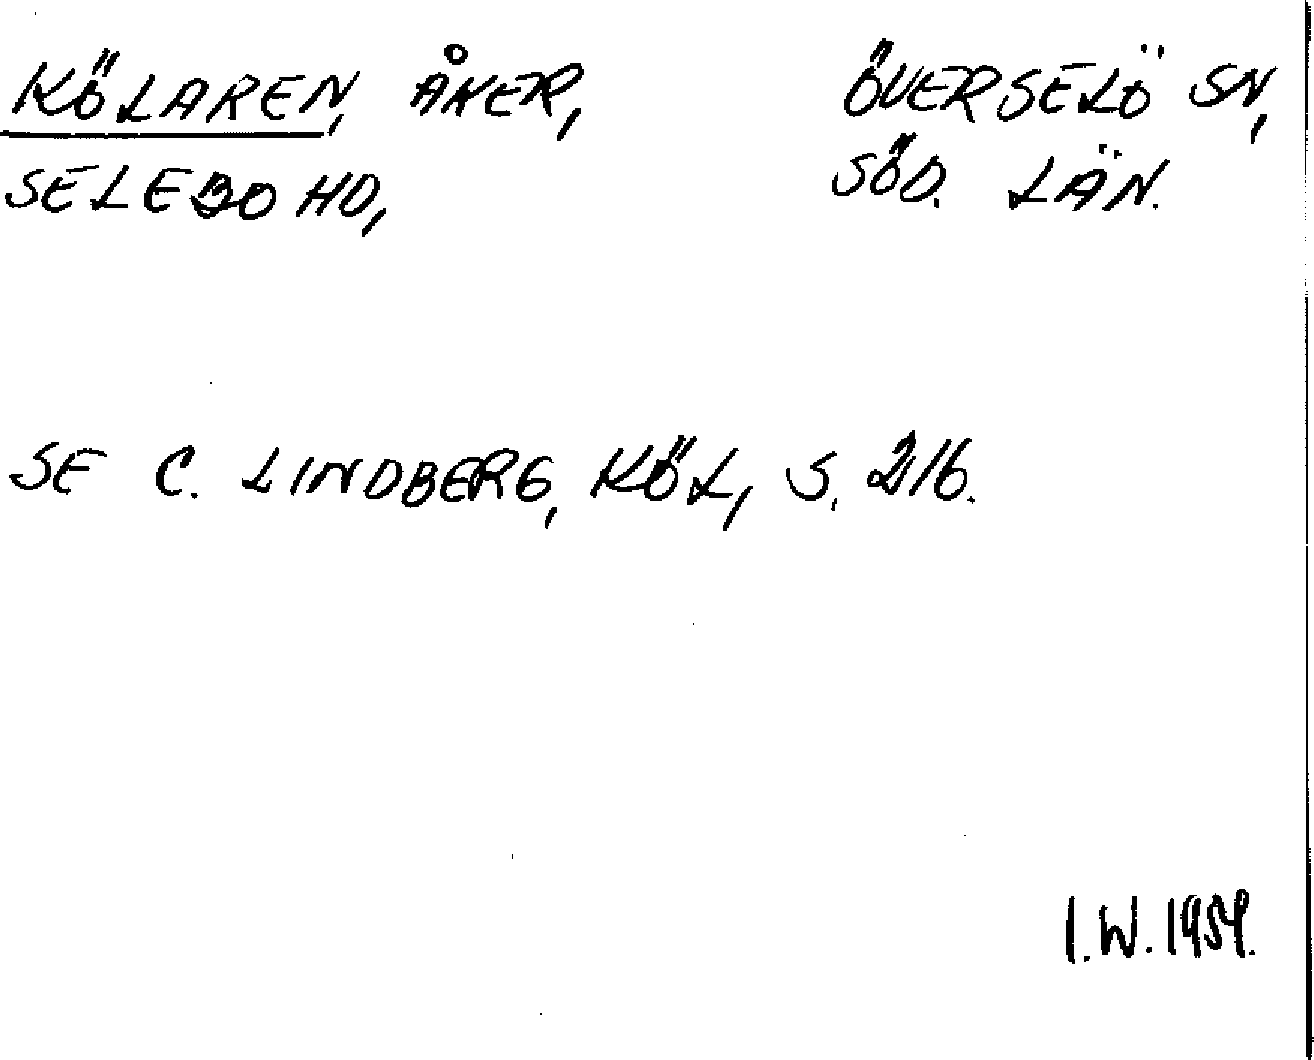 KÖLAREN, ÅKER, ÖVERSELÖ SN,
SELEBO HD, SÖD. LÄN.
SE C. LINDBERG, KÖL, S. 216.
I.W. 1959.